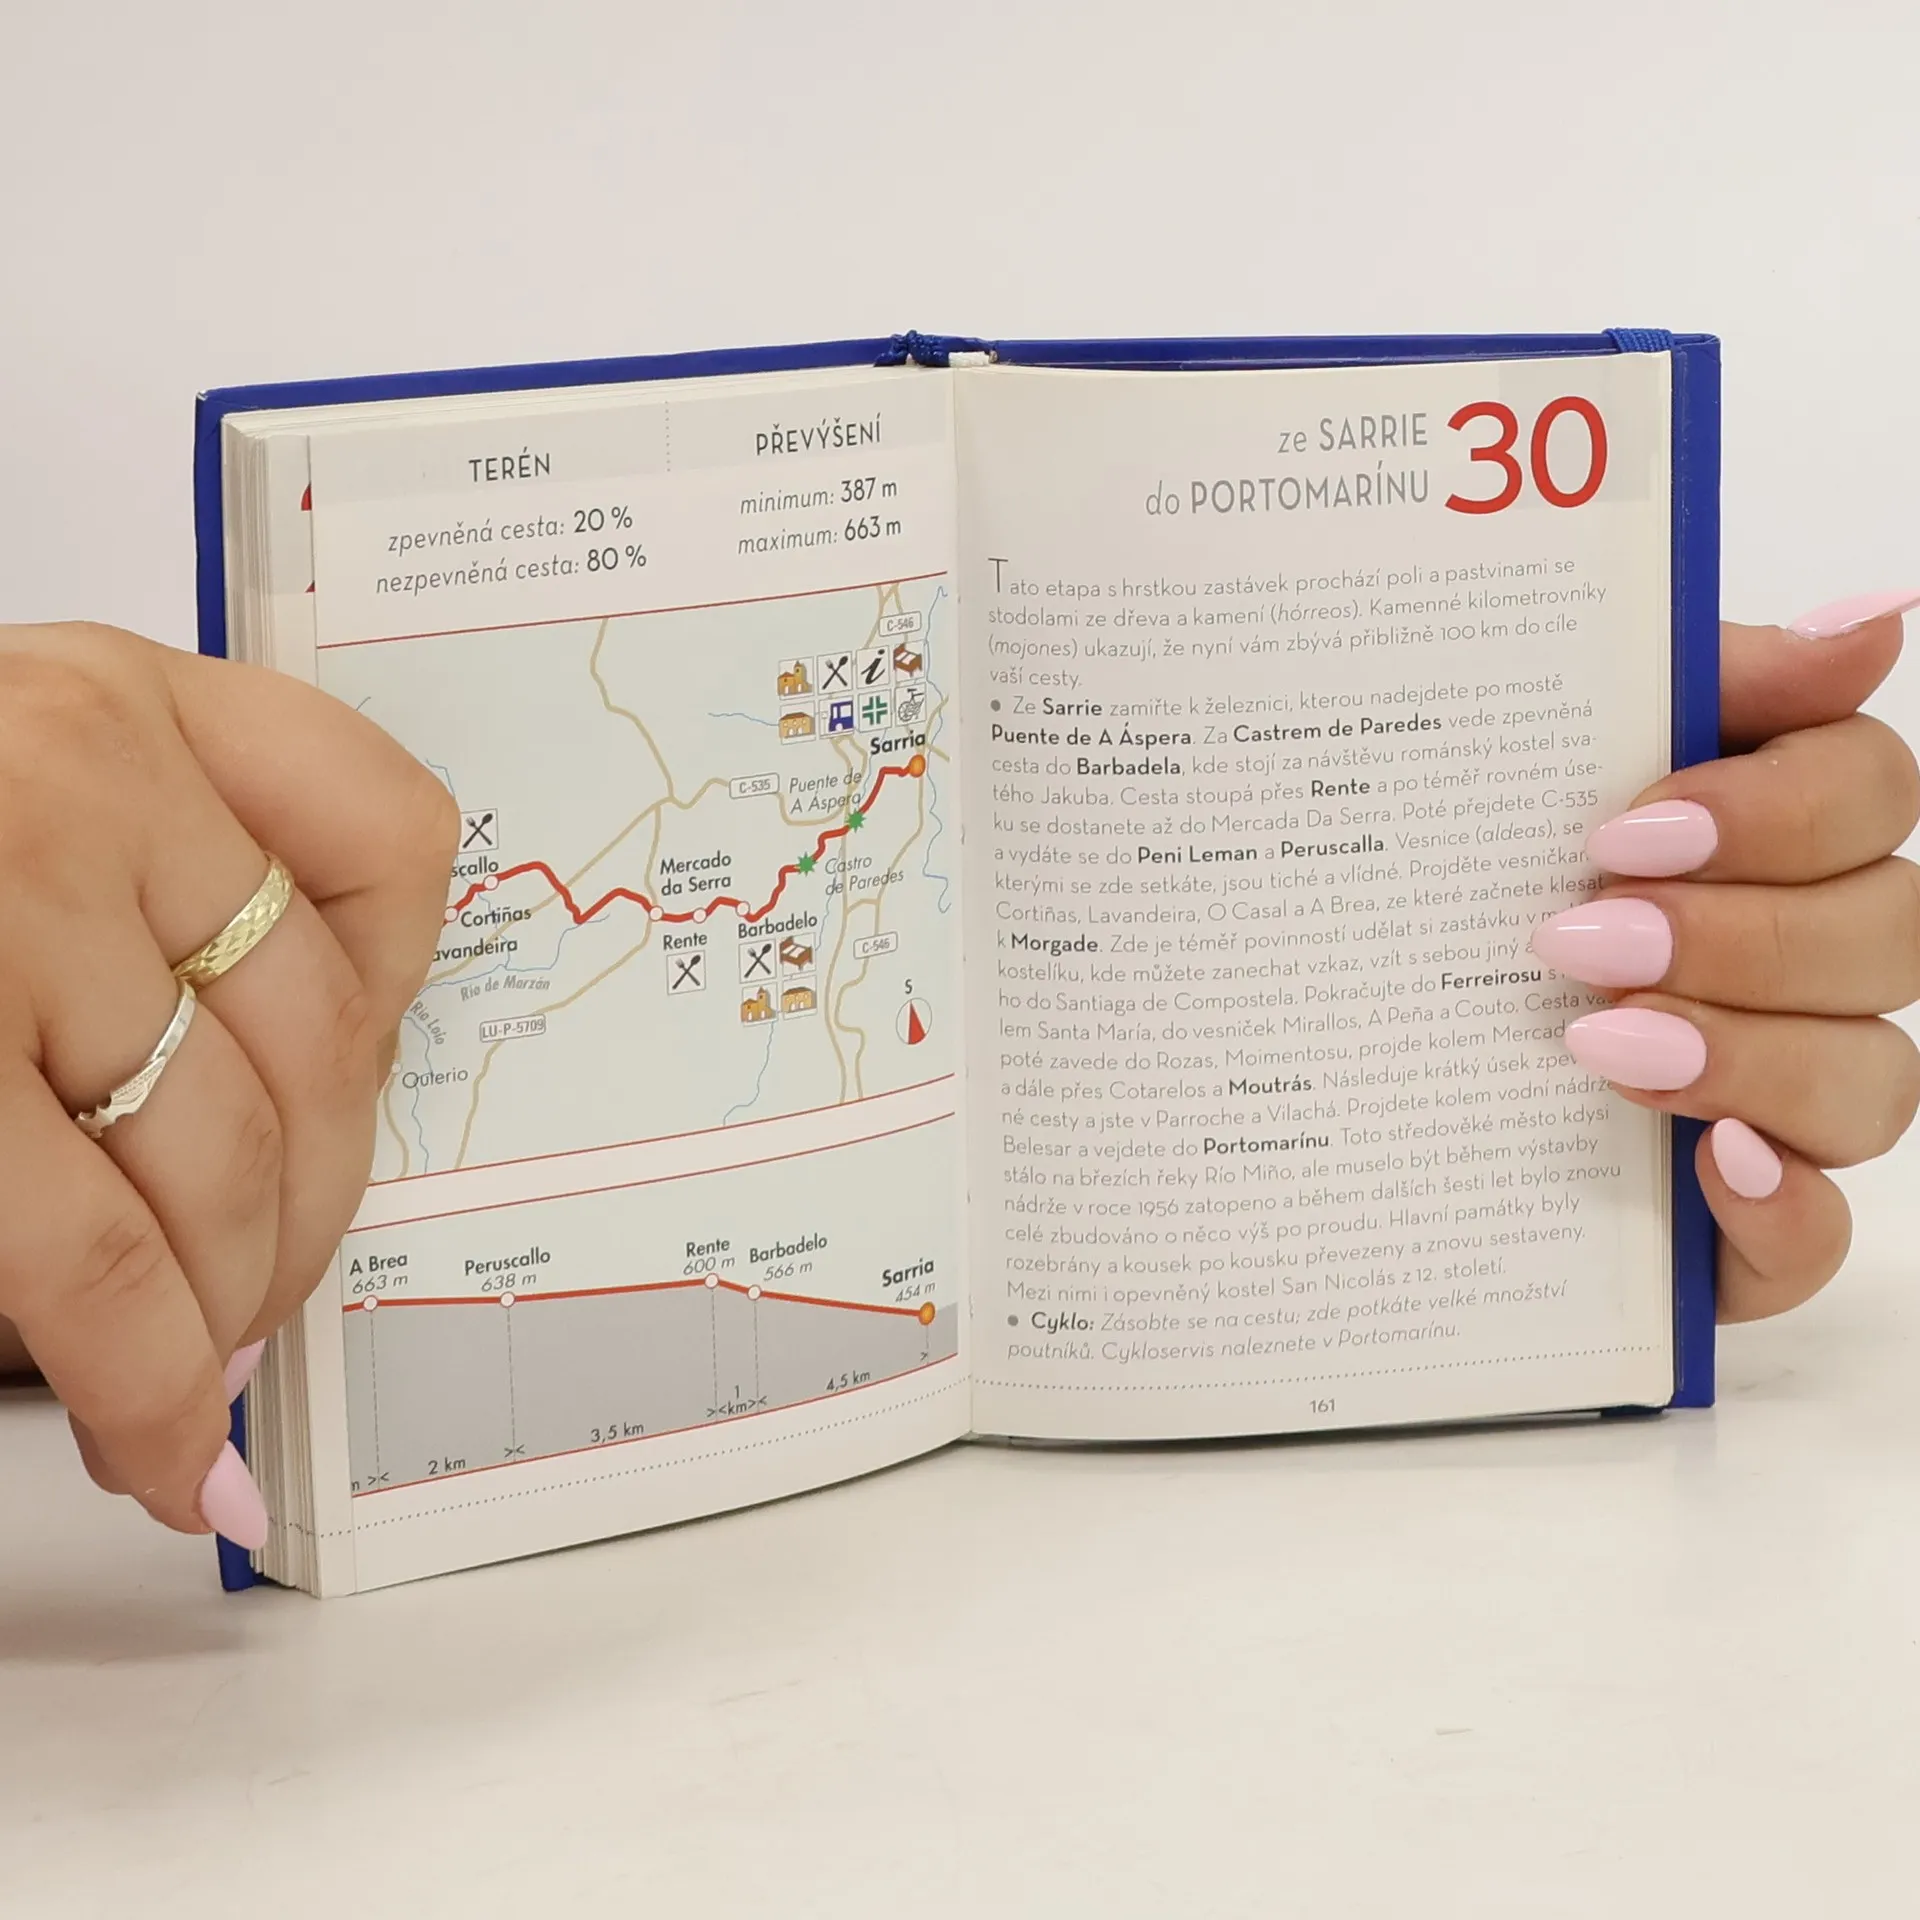 TERÉN
zpevněná cesta: 20 %
nezpevněná cesta: 80 %
PŘEVÝŠENÍ
minimum: 387 m
maximum: 663 m
C-546
Sarria
C-535
Puente de
A Áspera
Castro
de Paredes
scallo
Mercado
da Serra
Cortiñas
Rente
Barbadelo
avandeira
Río de Marzán
C-546
S
Río Loio
LU-P-5709
Outerio
A Brea
663 m
Peruscallo
638 m
Rente
600 m
Barbadelo
566 m
Sarria
454 m
2 km
3,5 km
1
km
4,5 km
ze SARRIE
do PORTOMARÍNU
30
Tato etapa s hrstkou zastávek prochází poli a pastvinami se
stodolami ze dřeva a kamení (hórreos). Kamenné kilometrovníky
(mojones) ukazují, že nyní vám zbývá přibližně 100 km do cíle
vaší cesty.
• Ze Sarrie zamiřte k železnici, kterou nadejdete po mostě
Puente de A Áspera. Za Castrem de Paredes vede zpevněná
cesta do Barbadela, kde stojí za návštěvu románský kostel sva-
tého Jakuba. Cesta stoupá přes Rente a po téměř rovném úse-
ku se dostanete až do Mercada Da Serra. Poté přejdete C-535
a vydáte se do Peni Leman a Peruscalla. Vesnice (aldeas), se
kterými se zde setkáte, jsou tiché a vlídné. Projděte vesničkam
Cortiñas, Lavandeira, O Casal a A Brea, ze které začnete klesat
k Morgade. Zde je téměř povinností udělat si zastávku v
kostelíku, kde můžete zanechat vzkaz, vzít s sebou jiný a
ho do Santiaga de Compostela. Pokračujte do Ferreirosu s
lem Santa María, do vesniček Mirallos, A Peña a Couto. Cesta vás
poté zavede do Rozas, Moimentosu, projde kolem Mercad
a dále přes Cotarelos a Moutrás. Následuje krátký úsek zpev
né cesty a jste v Parroche a Vilachá. Projdete kolem vodní nádrže
Belesar a vejdete do Portomarínu. Toto středověké město kdysi
stálo na březích řeky Río Miño, ale muselo být během výstavby
nádrže v roce 1956 zatopeno a během dalších šesti let bylo znovu
celé zbudováno o něco výš po proudu. Hlavní památky byly
rozebrány a kousek po kousku převezeny a znovu sestaveny.
Mezi nimi i opevněný kostel San Nicolás z 12. století.
• Cyklo: Zásobte se na cestu; zde potkáte velké množství
poutníků. Cykloservis naleznete v Portomarínu.
161